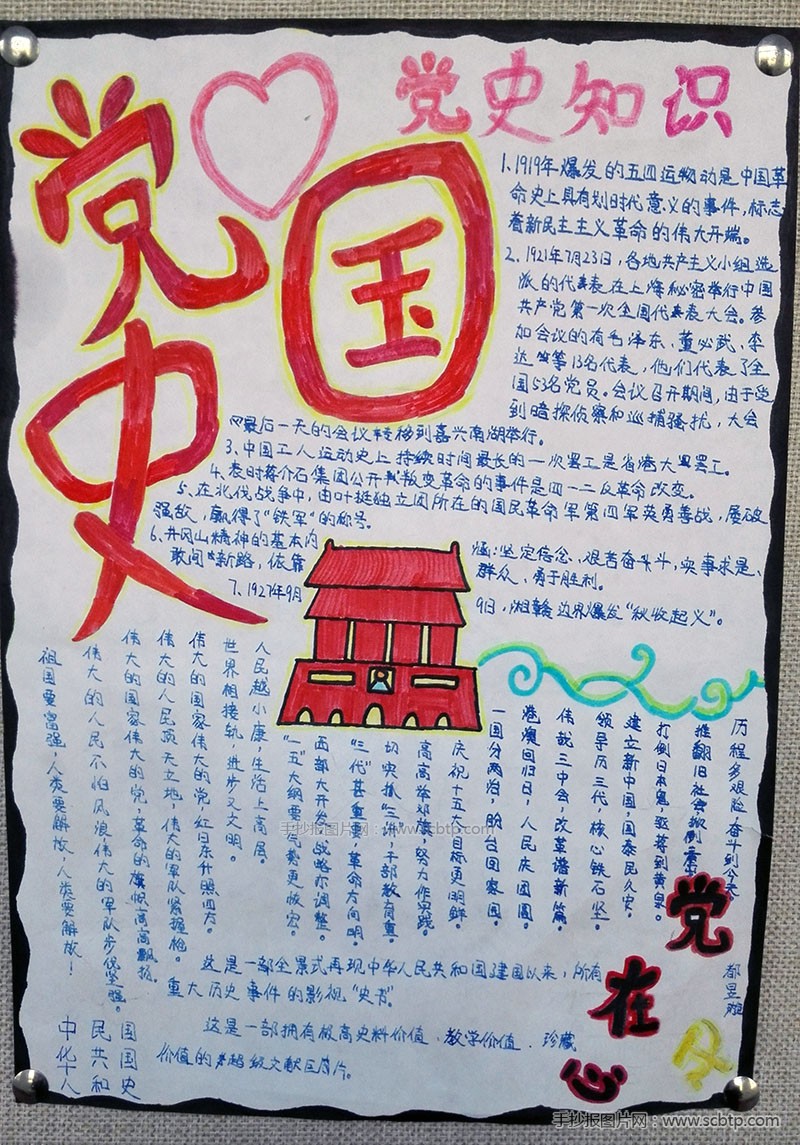 党史
国
党史知识
1、1919年爆发的五四运动是中国革
命史上具有划时代意义的事件,标志
着新民主主义革命的伟大开端。
2、1921年7月23日,各地共产主义小组选
派的代表在上海秘密举行中国
共产党第一次全国代表大会。参
加会议的有毛泽东、董必武、李
达等13名代表,他们代表了全
国53名党员。会议召开期间,由于受
到暗探侦察和巡捕骚扰,大会
最后一天的会议转移到嘉兴南湖举行。
3、中国工人运动史上持续时间最长的一次罢工是省港大罢工。
4、表时蒋介石集团公开叛变革命的事件是四一二反革命改变。
5、在北伐战争中,由叶挺独立团所在的国民革命军第四军英勇善战,屡破
强敌,赢得了"铁军"的称号。
6、井冈山精神的基本内涵:坚定信念、艰苦奋斗,实事求是、
敢闯新路,依靠群众、勇于胜利。
7、1927年9月9日,湘赣边界爆发"秋收起义"。
历程多艰险 奋斗到今天。
推翻旧社会 掀倒
打倒日本鬼,驱蒋到黄泉。
建立新中国,国泰民久安。
领导历三代,核心铁石坚。
伟哉三中会,改革谱新篇。
港澳回归日,人民庆团圆。
一国分两治,盼台回家园。
庆祝十五大,目标更明鲜。
高高举邓旗,努力作实践。
切实抓"三讲",干部教育重。
"三代"甚重要,革命方向明。
西部大开发,战略亦调整。
"一五"大纲要,气势更恢宏。
人民越小康,生活上高层。
世界相接轨,进步又文明。
伟大的国家伟大的党,红日东升照四方。
伟大的人民顶天立地,伟大的军队紧握枪。
伟大的国家伟大的党,革命的旗帜高高飘扬。
伟大的人民不怕风浪伟大的军队步伐坚强。
祖国要富强,人类要解放,人类要解放!
这是一部全景式再现中华人民共和国建国以来,所有
重大历史事件的影视"史书"。
这是一部拥有极高史料价值、教学价值、珍藏
价值的超级文献巨片。
国国史
民共和
中化十人
党在心
手抄报图片网:www.scbtp.com
手抄报图片网:www.scbtp.com